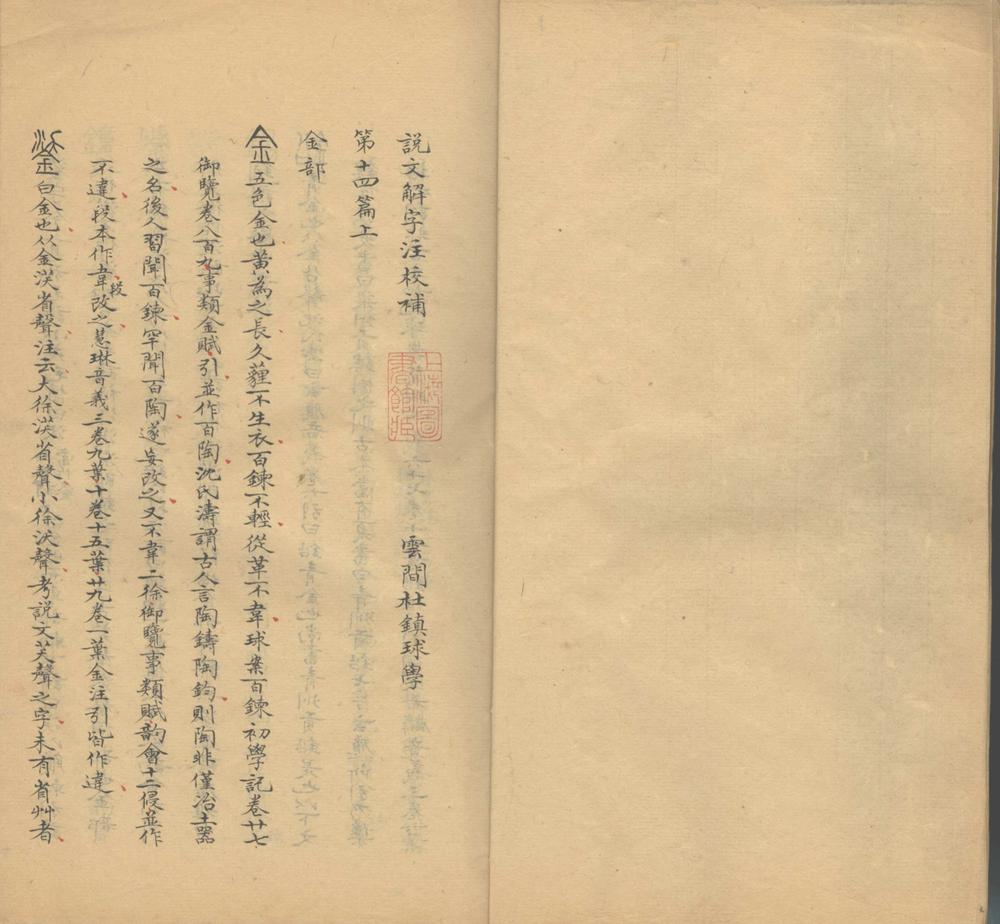 說文解字注校補 雲間杜鎮球學
第十四篇上
金部
金五色金也黃為之長久薶不生衣百鍊不輕從革不韋球案百鍊初學記卷廿七
御覽卷八百九事類金賦引並作百陶沈氏濤謂古人言陶鑄陶鈞則陶非僅冶土器
之名後人習聞百鍊罕聞百陶遂妄改之又不韋二徐御覽事類賦韵會十二侵並作
不違段本作韋段改之慧琳音義三卷九葉十卷十五葉廿九卷一葉金注引皆作違
鋈白金也从金渶省聲注云大徐渶省聲小徐沃聲考說文芺聲之字未有省艸者
上海圖書館藏